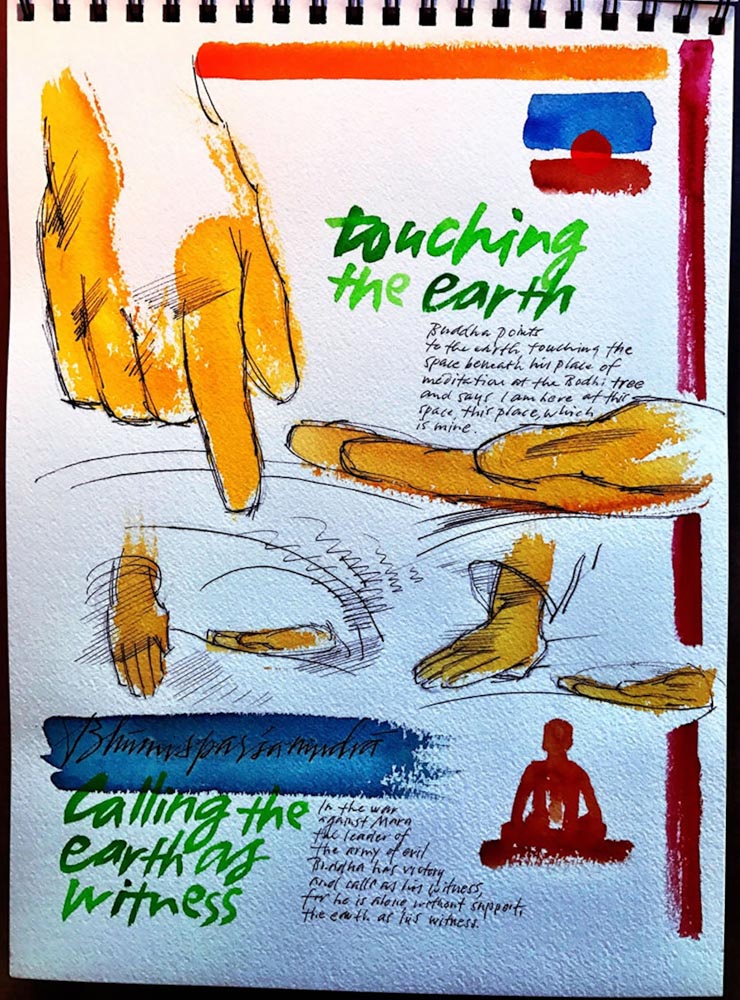 touching
the earth
Buddha points
to the earth, touching the
space beneath his place of
meditation at the Bodhi tree
and says I am here at this
space, this place, which
is mine.
Bhūmisparśamudrā
Calling the
earth as
witness
In the war
against Mara
the leader of
the army of evil
Buddha has victory
and calls as his witness,
for he is alone without support,
the earth as his witness.